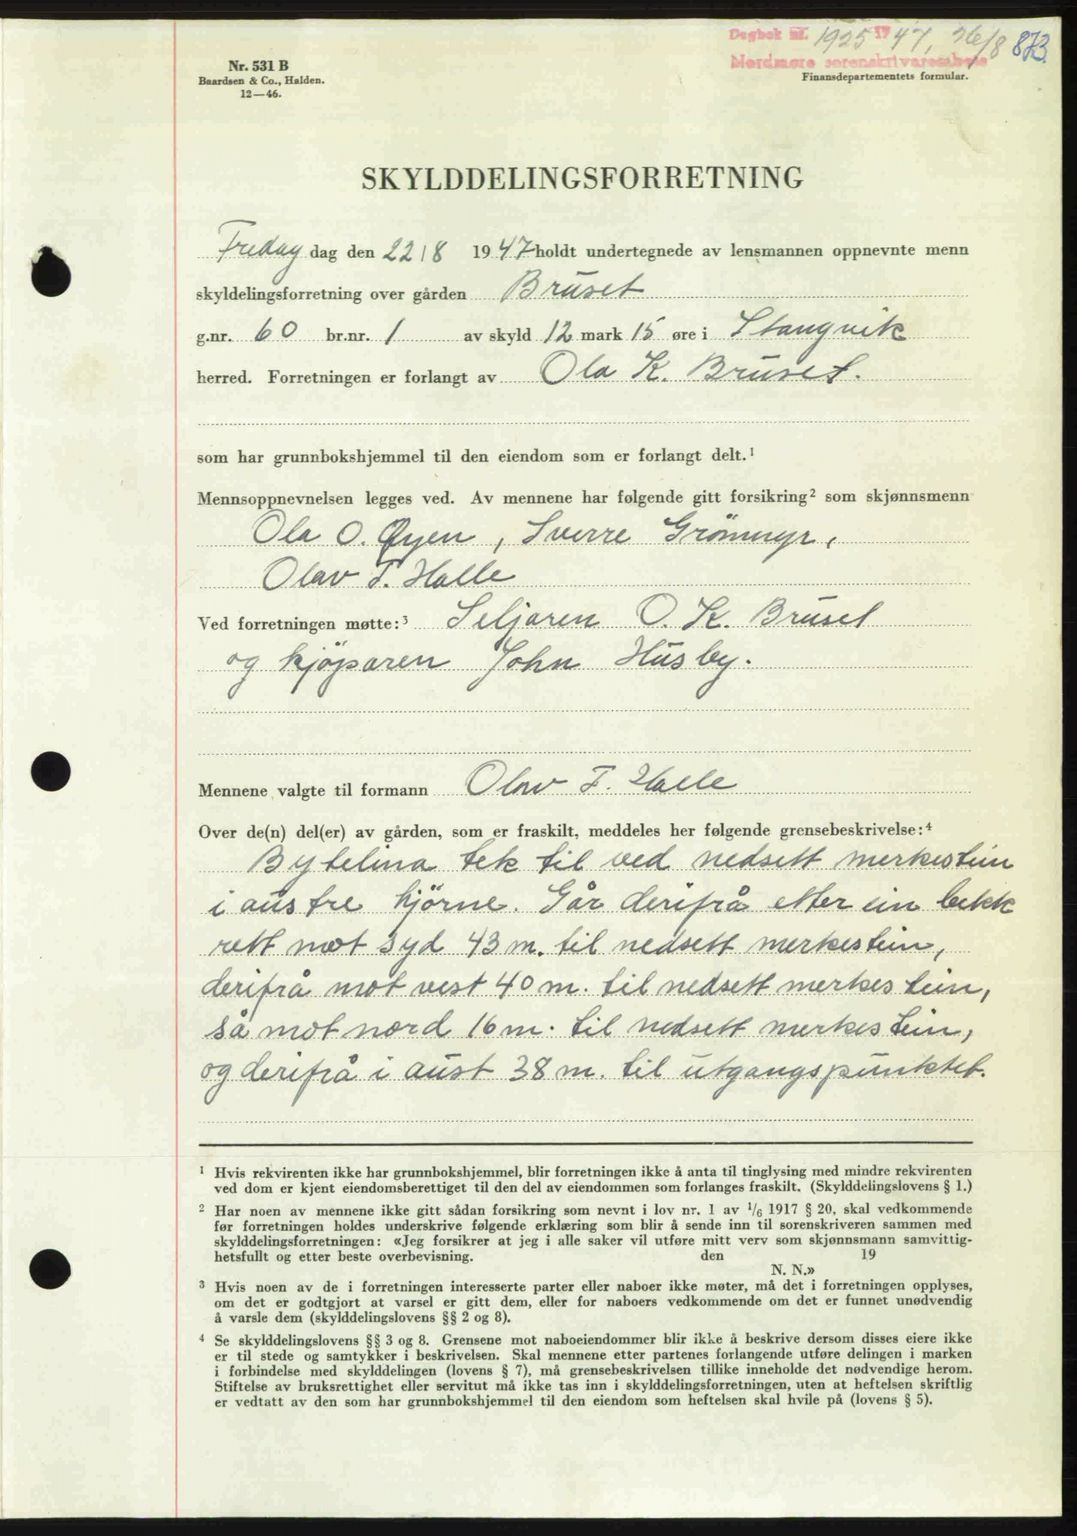 Dagbok nr. 1925 1947, 26/8 873.
Nordmøre sorenskriverembete
Nr. 531 B
Baardsen & Co., Halden.
12—46.
Finansdepartementets formular.
SKYLDDELINGSFORRETNING
Fredag dag den 22/8 1947 holdt undertegnede av lensmannen oppnevnte menn
skyldelingsforretning over gården Bruset
g.nr. 60 br.nr. 1 av skyld 12 mark 15 øre i Stangvik
herred. Forretningen er forlangt av Ola K. Bruset.
som har grunnbokshjemmel til den eiendom som er forlangt delt.¹
Mennsoppnevnelsen legges ved. Av mennene har følgende gitt forsikring² som skjønnsmenn
Ola O. Øyen, Sverre Grömmyr,
Olav T. Halle
Ved forretningen møtte:³ Seljaren O. K. Bruset
og kjöparen John Husby.
Mennene valgte til formann Olav T. Halle
Over de(n) del(er) av gården, som er fraskilt, meddeles her følgende grensebeskrivelse:⁴
Bytelina tek til ved nedsett merkestein
i austre hjörne. Går derifrå etter ein bekk
rett mot syd 43 m. til nedsett merkestein,
derifrå mot vest 40 m. til nedsett merkestein,
så mot nord 16 m. til nedsett merkestein,
og derifrå i aust 38 m. til utgangspunktet.
¹ Hvis rekvirenten ikke har grunnbokshjemmel, blir forretningen ikke å anta til tinglysing med mindre rekvirenten
ved dom er kjent eiendomsberettiget til den del av eiendommen som forlanges fraskilt. (Skylddelingslovens § 1.)
² Har noen av mennene ikke gitt sådan forsikring som nevnt i lov nr. 1 av 1/6 1917 § 20, skal vedkommende
før forretningen holdes underskrive følgende erklæring som blir å sende inn til sorenskriveren sammen med
skylddelingsforretningen: «Jeg forsikrer at jeg i alle saker vil utføre mitt verv som skjønnsmann samvittig-
hetsfullt og etter beste overbevisning. den 19
N. N.»
³ Hvis noen av de i forretningen interesserte parter eller naboer ikke møter, må det i forretningen opplyses,
om det er godtgjort at varsel er gitt dem, eller for naboers vedkommende om det er funnet unødvendig
å varsle dem (skylddelingslovens §§ 2 og 8).
⁴ Se skylddelingslovens §§ 3 og 8. Grensene mot naboeiendommer blir ikke å beskrive dersom disses eiere ikke
er til stede og samtykker i beskrivelsen. Skal mennene etter partenes forlangende utføre delingen i marken
i forbindelse med skylddelingen (lovens § 7), må grensebeskrivelsen tillike inneholde det nødvendige herom.
Stiftelse av bruksrettighet eller servitut må ikke tas inn i skylddelingsforretningen, uten at heftelsen skriftlig
er vedtatt av den som har grunnbokshjemmel til den eiendom som heftelsen skal hvile på (lovens § 5).